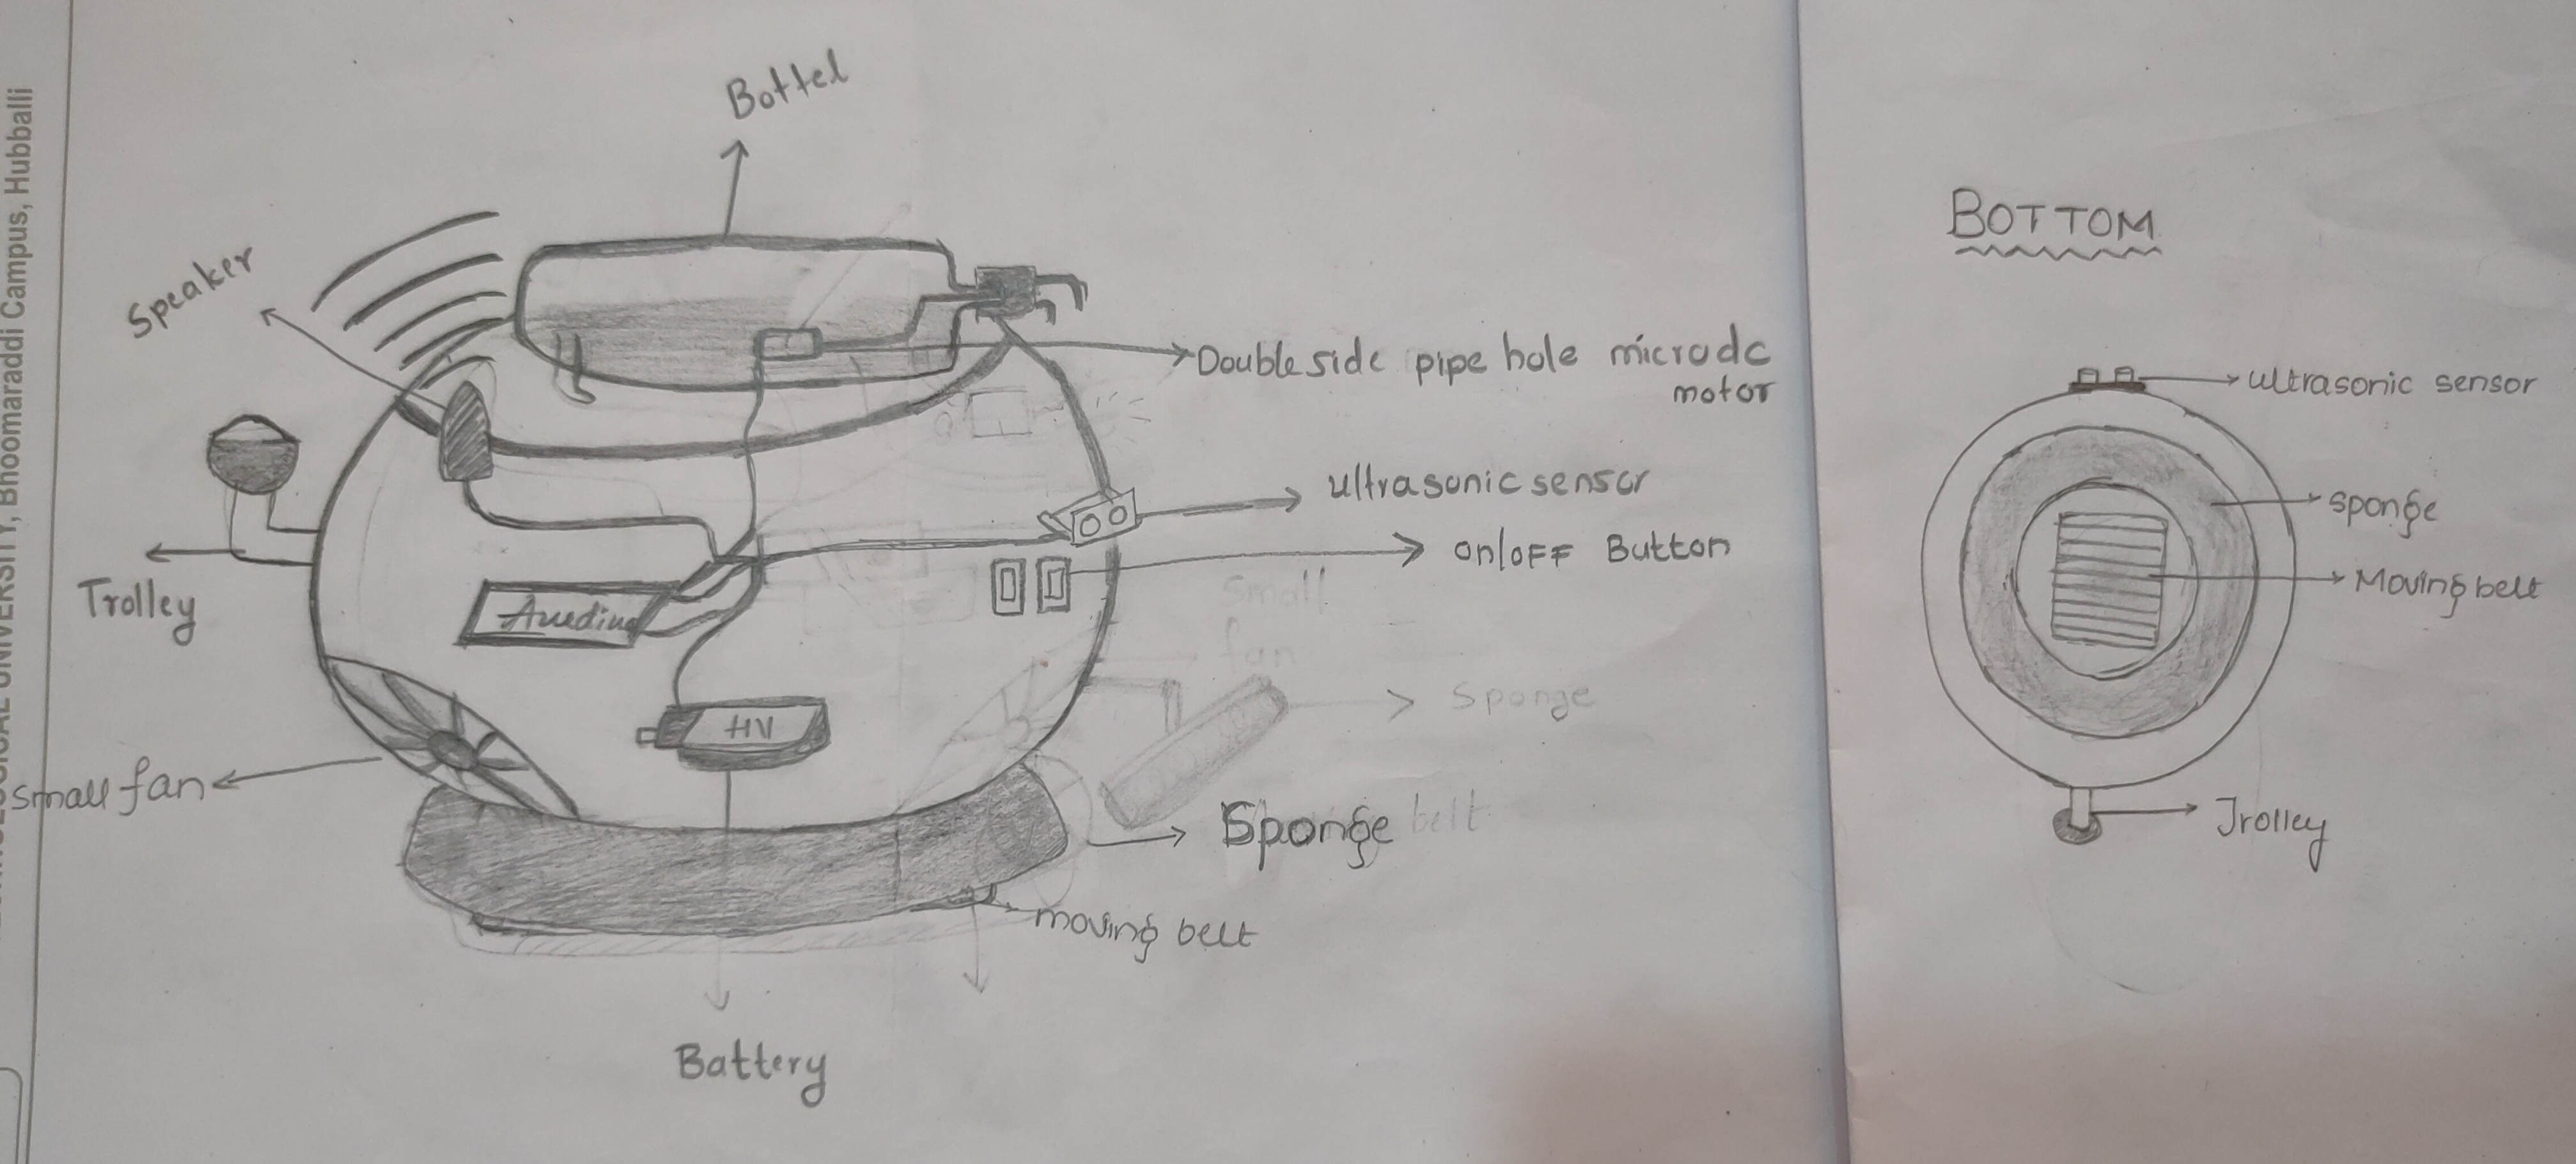 UNIVERSITY, Bhoomaraddi Campus, Hubballi
Bottel
Speaker
Double side pipe hole microdc
motor
ultrasonic sensor
on/oFF Button
Trolley
small
fan
Sponge
HV
small fan
Sponge belt
moving belt
Battery
BOTTOM
ultrasonic sensor
sponge
Moving belt
Trolley